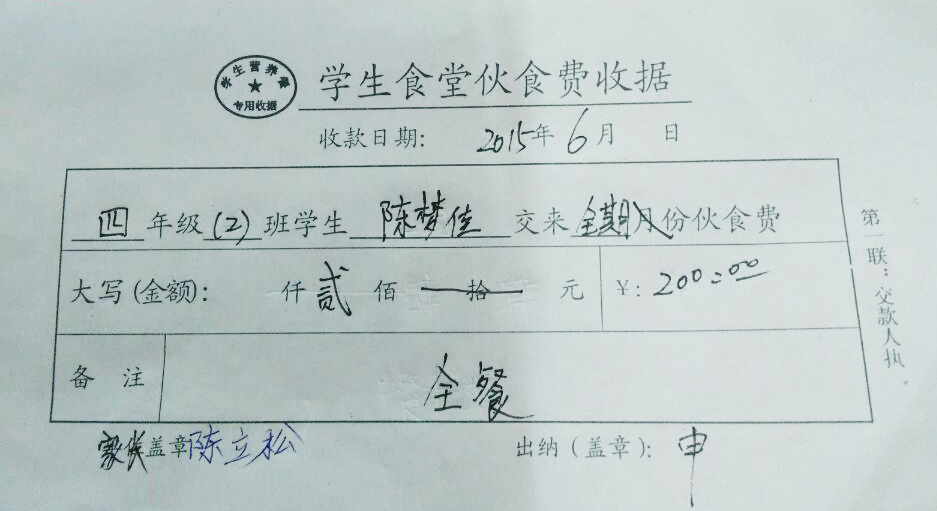 学生营养餐
★
专用收据
学生食堂伙食费收据
收款日期: 2015年6月 日
四年级(2)班学生 陈梦佳 交来全期月份伙食费
大写(金额): 仟贰佰 拾 元 ¥: 200=00
备 注 全餐
家长盖章 陈立松 出纳(盖章): 申
第一联:交款人执